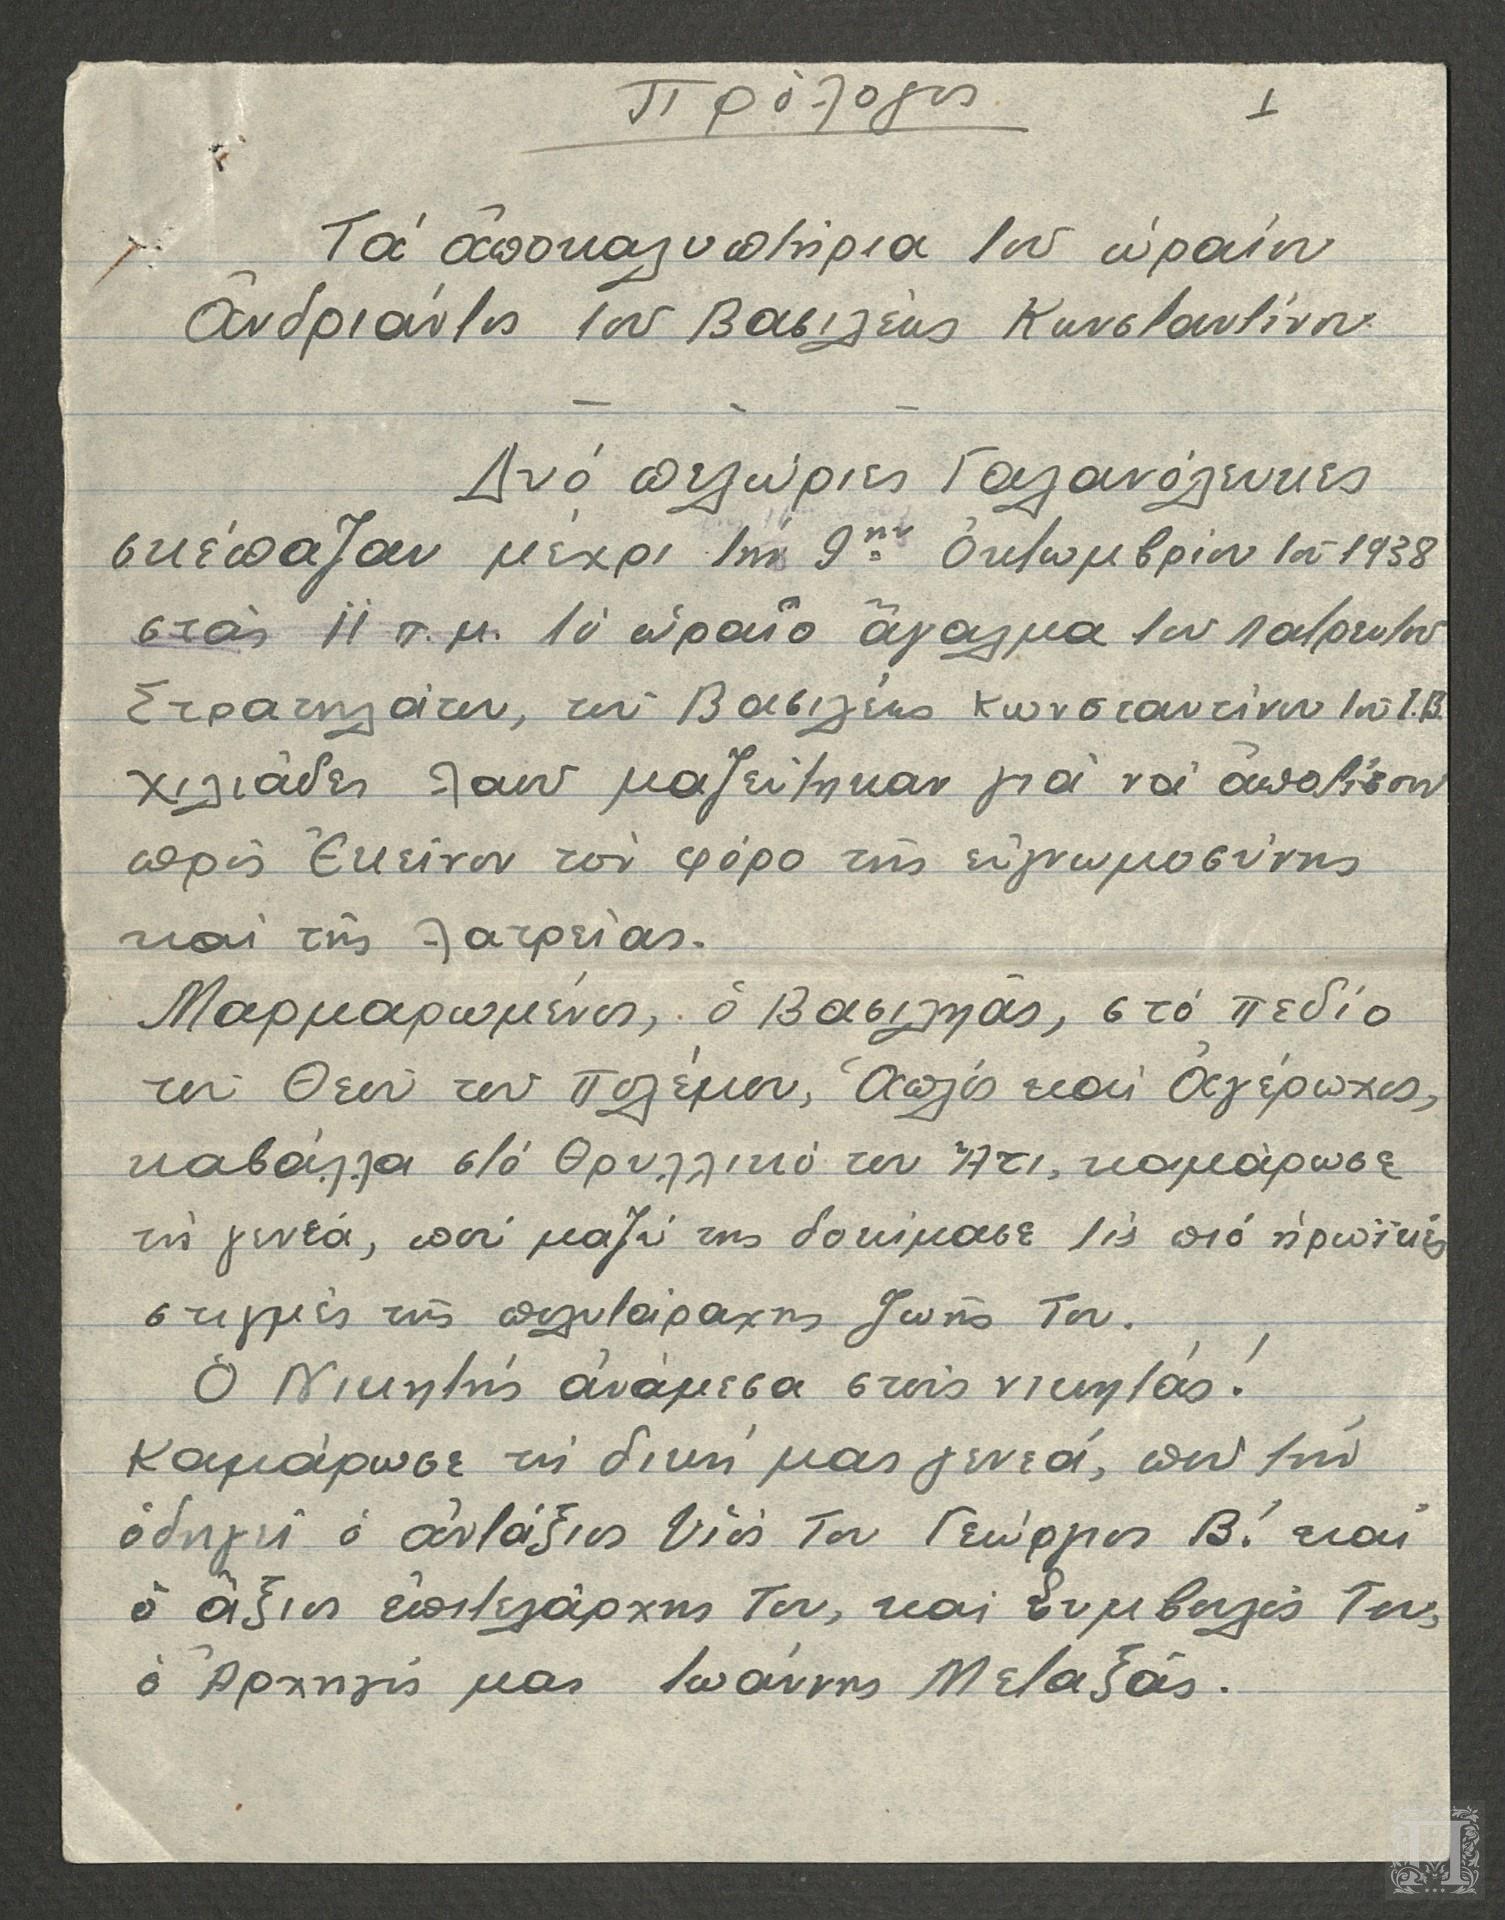 Πρόλογος
1
Τά ἀποκαλυπτήρια τοῦ ὡραίου
Ἀνδριάντος τοῦ Βασιλέως Κωνσταντίνου
Δυό πελώριες Γαλανόλευκες
σκέπαζαν μέχρι τήν 9ην Ὀκτωμβρίου τοῦ 1938
στάς 11 π.μ. τό ὡραῖο ἄγαλμα τοῦ λατρευτοῦ
Στρατηλάτου, τοῦ Βασιλέως Κωνσταντίνου τοῦ Ι.Β.
χιλιάδες λαοῦ μαζεύτηκαν γιά νά ἀποτίσουν
πρός Ἐκεῖνον τόν φόρο τῆς εὐγνωμοσύνης
καί τῆς λατρείας.
Μαρμαρωμένος, ὁ Βασιληᾶς, στό πεδίο
τοῦ Θεοῦ τοῦ Πολέμου, Ἁπλός καί Ἀγέρωχος,
καβάλλα στό Θρυλλικό του Ἄτι, καμάρωσε
τή γενεά, πού μαζύ της δοκίμασε τίς πιό ἡρωϊκές
στιγμές τῆς πολυτάραχης ζωῆς Του.
Ὁ Νικητής ἀνάμεσα στούς νικητάς!
Καμάρωσε τή δική μας γενεά, πού τήν
ὁδηγεῖ ὁ ἀντάξιος Υἱός Του Γεώργιος Β! καί
ὁ ἄξιος ἐπιτελάρχης Του, καί Συμβουλός Του,
ὁ Ἀρχηγός μας Ἰωάννης Μεταξᾶς.